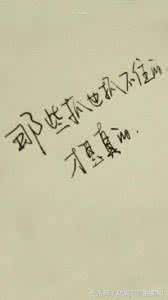 那些抓也抓不住的
才是真的.